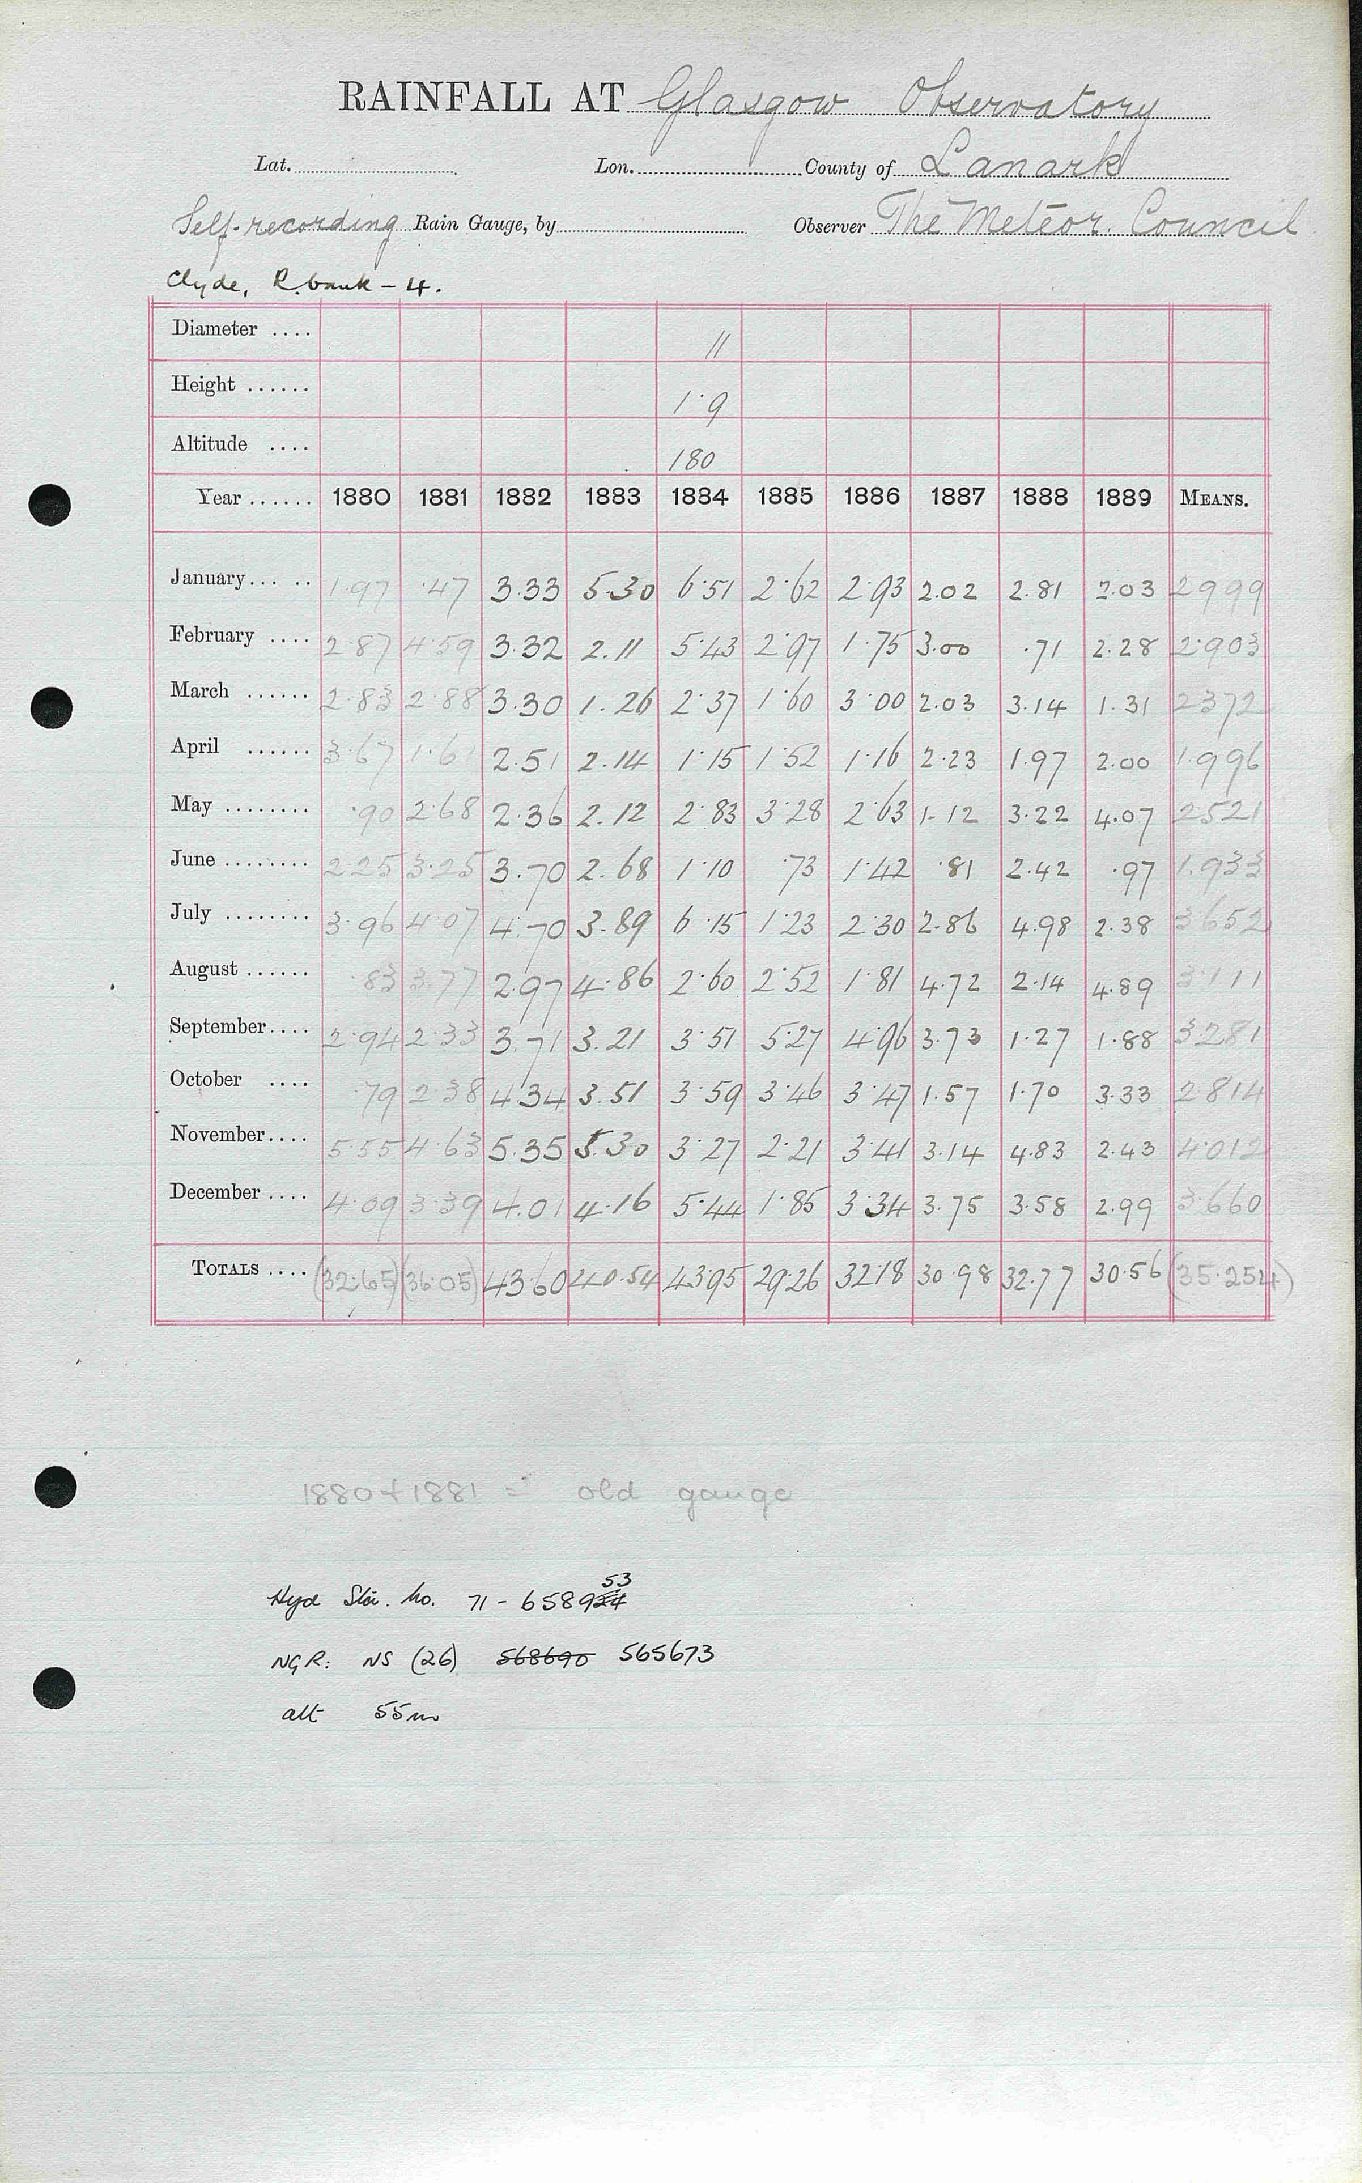 RAINFALL AT Glasgow Observatory
Lat. Lon. County of Lanark
Self-recording Rain Gauge, by Observer The Meteor. Council
Clyde, R. bank - 4.
Diameter .... 11
Height ...... 1·9
Altitude .... 180
Year ...... 1880 1881 1882 1883 1884 1885 1886 1887 1888 1889 MEANS.
January... .. 1·97 ·47 3.33 5.30 6·51 2·62 2·93 2.02 2.81 2.03 2.999
February .... 2·87 4·59 3.32 2.11 5·43 2·97 1·75 3.00 .71 2.28 2·903
March ...... 2·83 2·88 3.30 1.26 2·37 1·60 3·00 2.03 3.14 1.31 2.372
April ...... 3·67 1·61 2.51 2.14 1·15 1·52 1·16 2.23 1.97 2.00 1.996
May ........ ·90 2·68 2.36 2.12 2·83 3·28 2·63 1.12 3.22 4.07 2.521
June ........ 2.25 3·25 3.70 2.68 1·10 ·73 1·42 ·81 2.42 .97 1.933
July ........ 3·96 4·07 4.70 3.89 6·15 1·23 2·30 2.86 4.98 2.38 3.652
August ...... ·83 3.77 2.97 4.86 2·60 2·52 1·81 4.72 2.14 4.89 3.111
September.... 2·94 2·33 3.71 3.21 3·51 5·27 4·96 3.73 1.27 1.88 3.281
October .... ·79 2·38 4.34 3.51 3·59 3·46 3·47 1.57 1.70 3.33 2.814
November.... 5·55 4·63 5.35 5.30 3·27 2·21 3·41 3.14 4.83 2.43 4.012
December .... 4·09 3·39 4.01 4.16 5·44 1·85 3·34 3.75 3.58 2.99 3.660
TOTALS .... (32·65) (36·05) 43·60 40.54 43·95 29·26 32·18 30.98 32.77 30.56 (35.254)
1880 + 1881 = old gauge
53
Hyd Stn. No. 71 - 658924
NGR: NS (26) 568690 565673
alt 55m